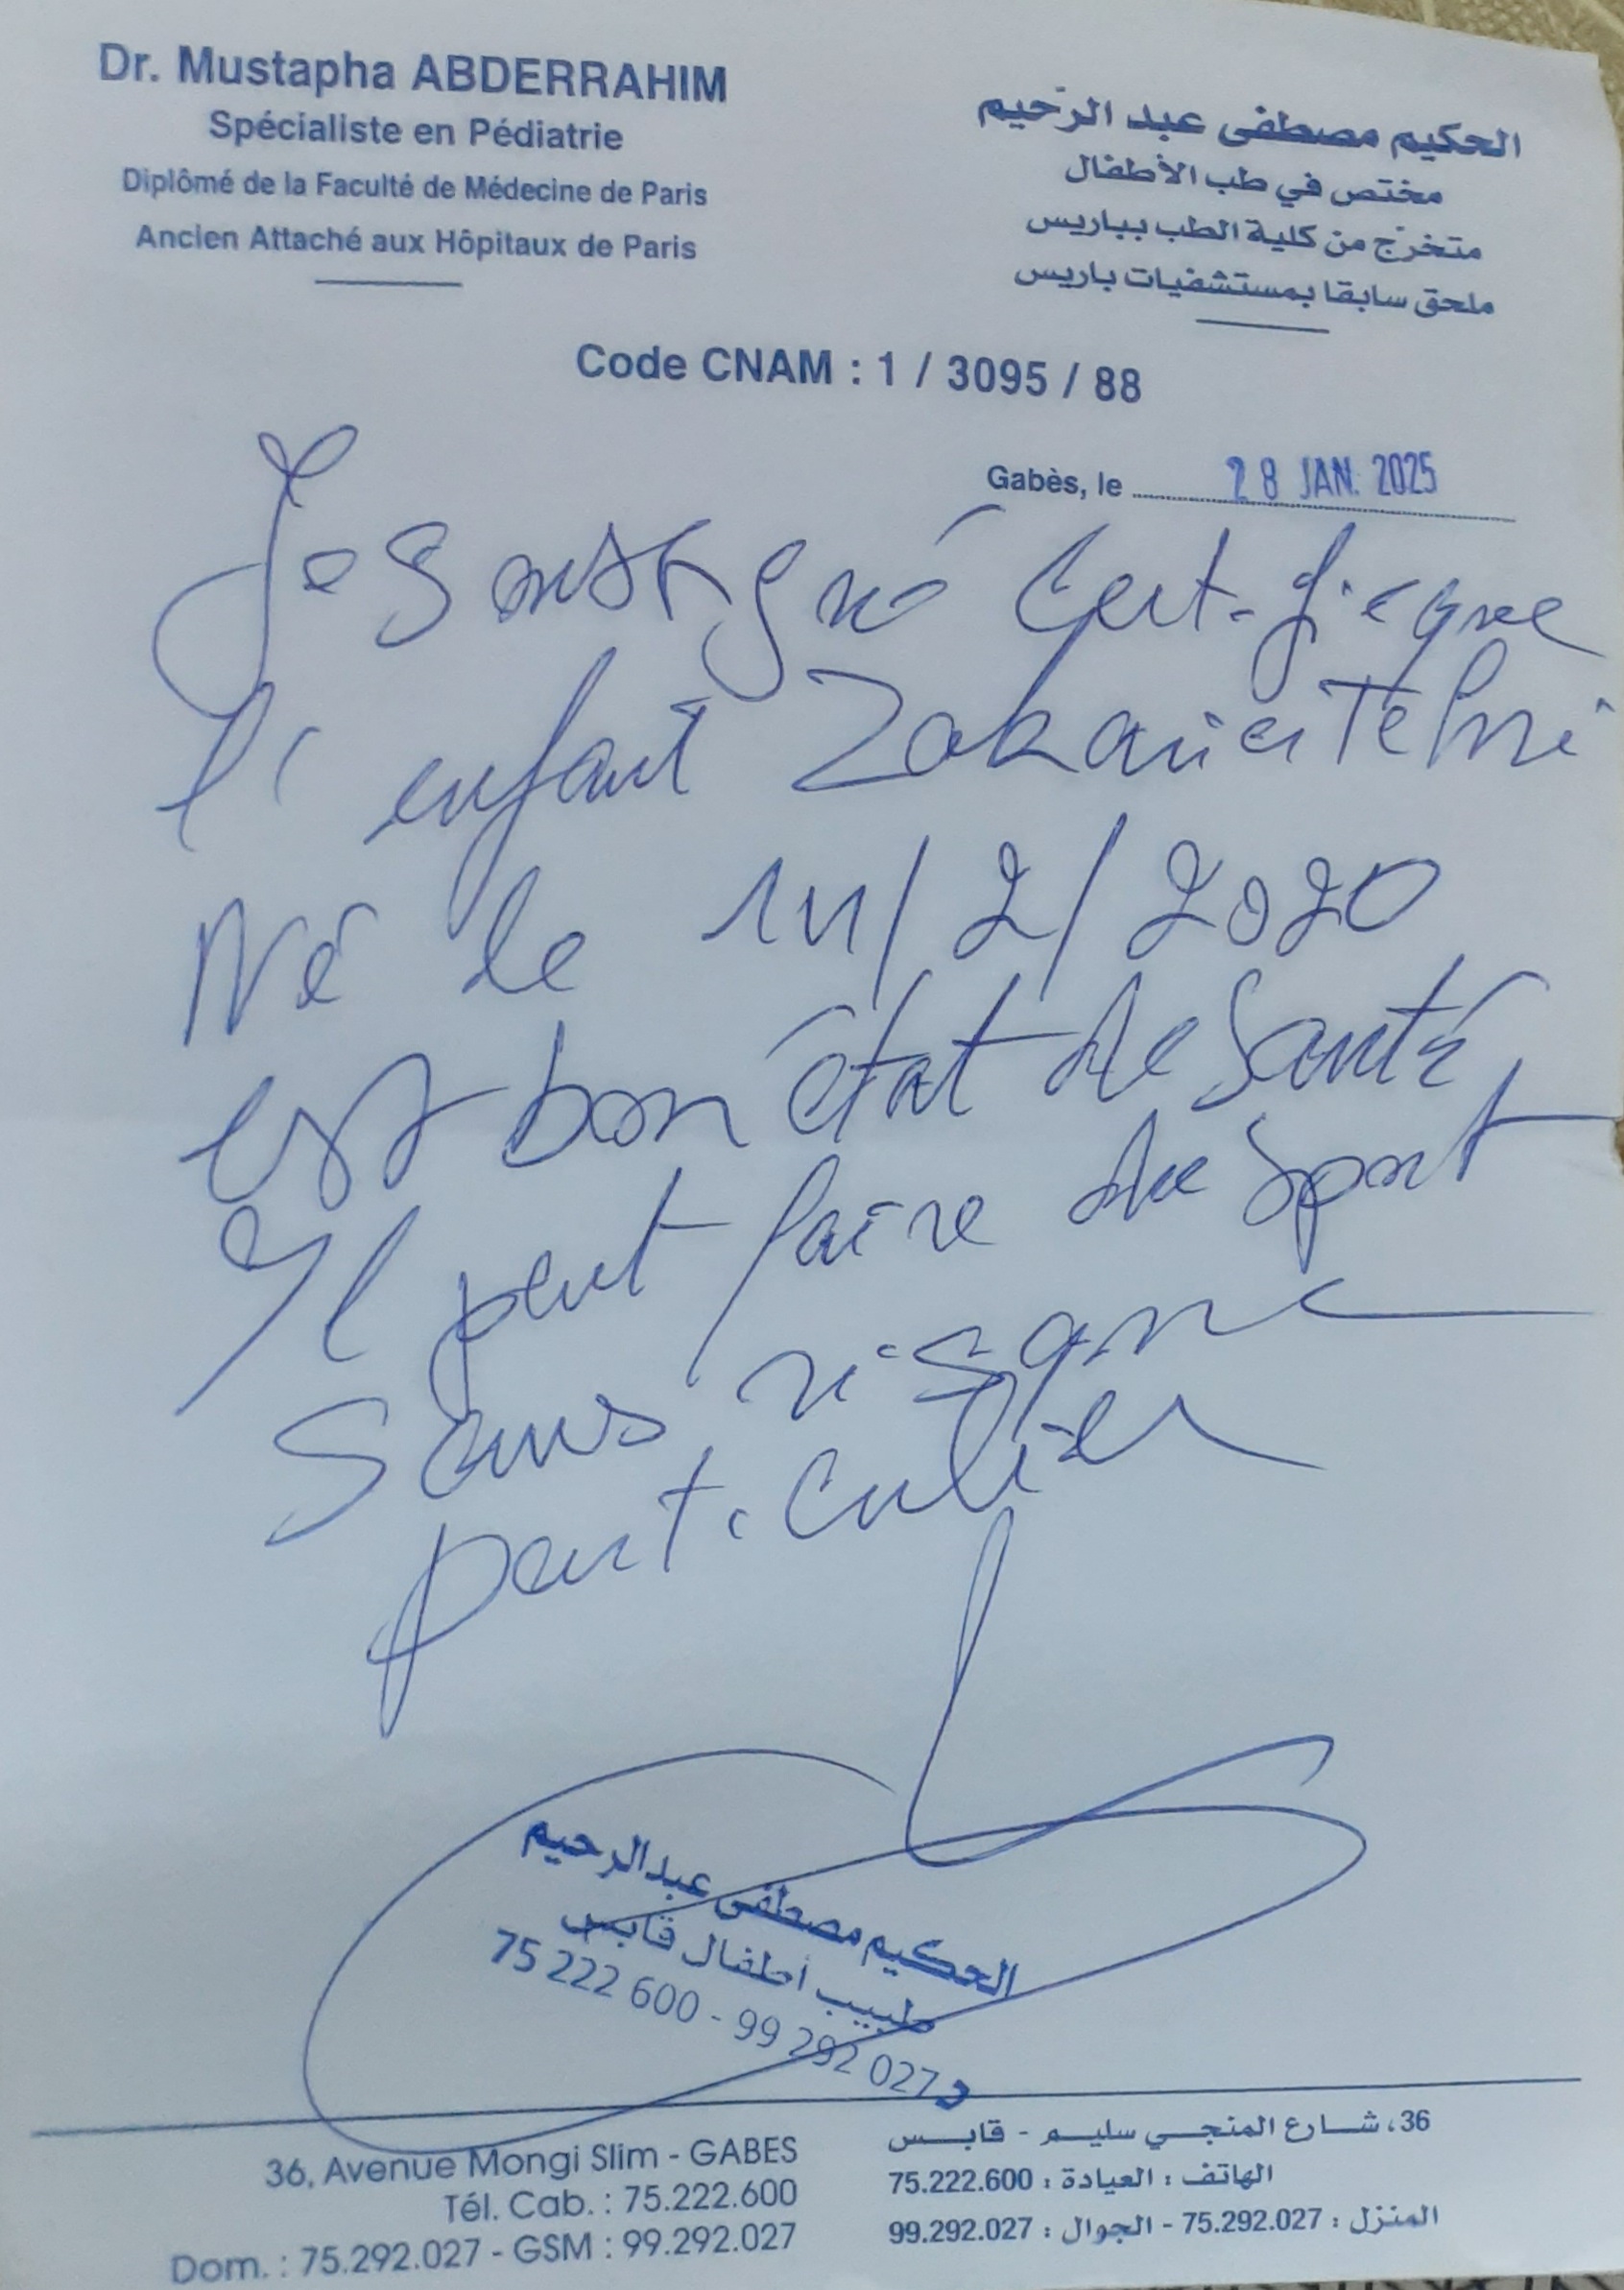 Dr. Mustapha ABDERRAHIM
Spécialiste en Pédiatrie
Diplômé de la Faculté de Médecine de Paris
Ancien Attaché aux Hôpitaux de Paris
الحكيم مصطفى عبد الرّحيم
مختص في طب الأطفال
متخرّج من كلية الطب بباريس
ملحق سابقا بمستشفيات باريس
Code CNAM : 1 / 3095 / 88
Gabès, le 28 JAN. 2025
Je soussigné certifie que
l'enfant Zakaria
Né le 11/2/2020
est bon état de santé
Il peut faire du sport
sans risque
particulier
الحكيم مصطفى عبدالرحيم
طبيب أطفال قابس
75 222 600 - 99 292 027
36, Avenue Mongi Slim - GABES
Tél. Cab. : 75.222.600
Dom. : 75.292.027 - GSM : 99.292.027
36، شارع المنجي سليم - قابس
الهاتف : العيادة : 75.222.600
المنزل : 75.292.027 - الجوال : 99.292.027